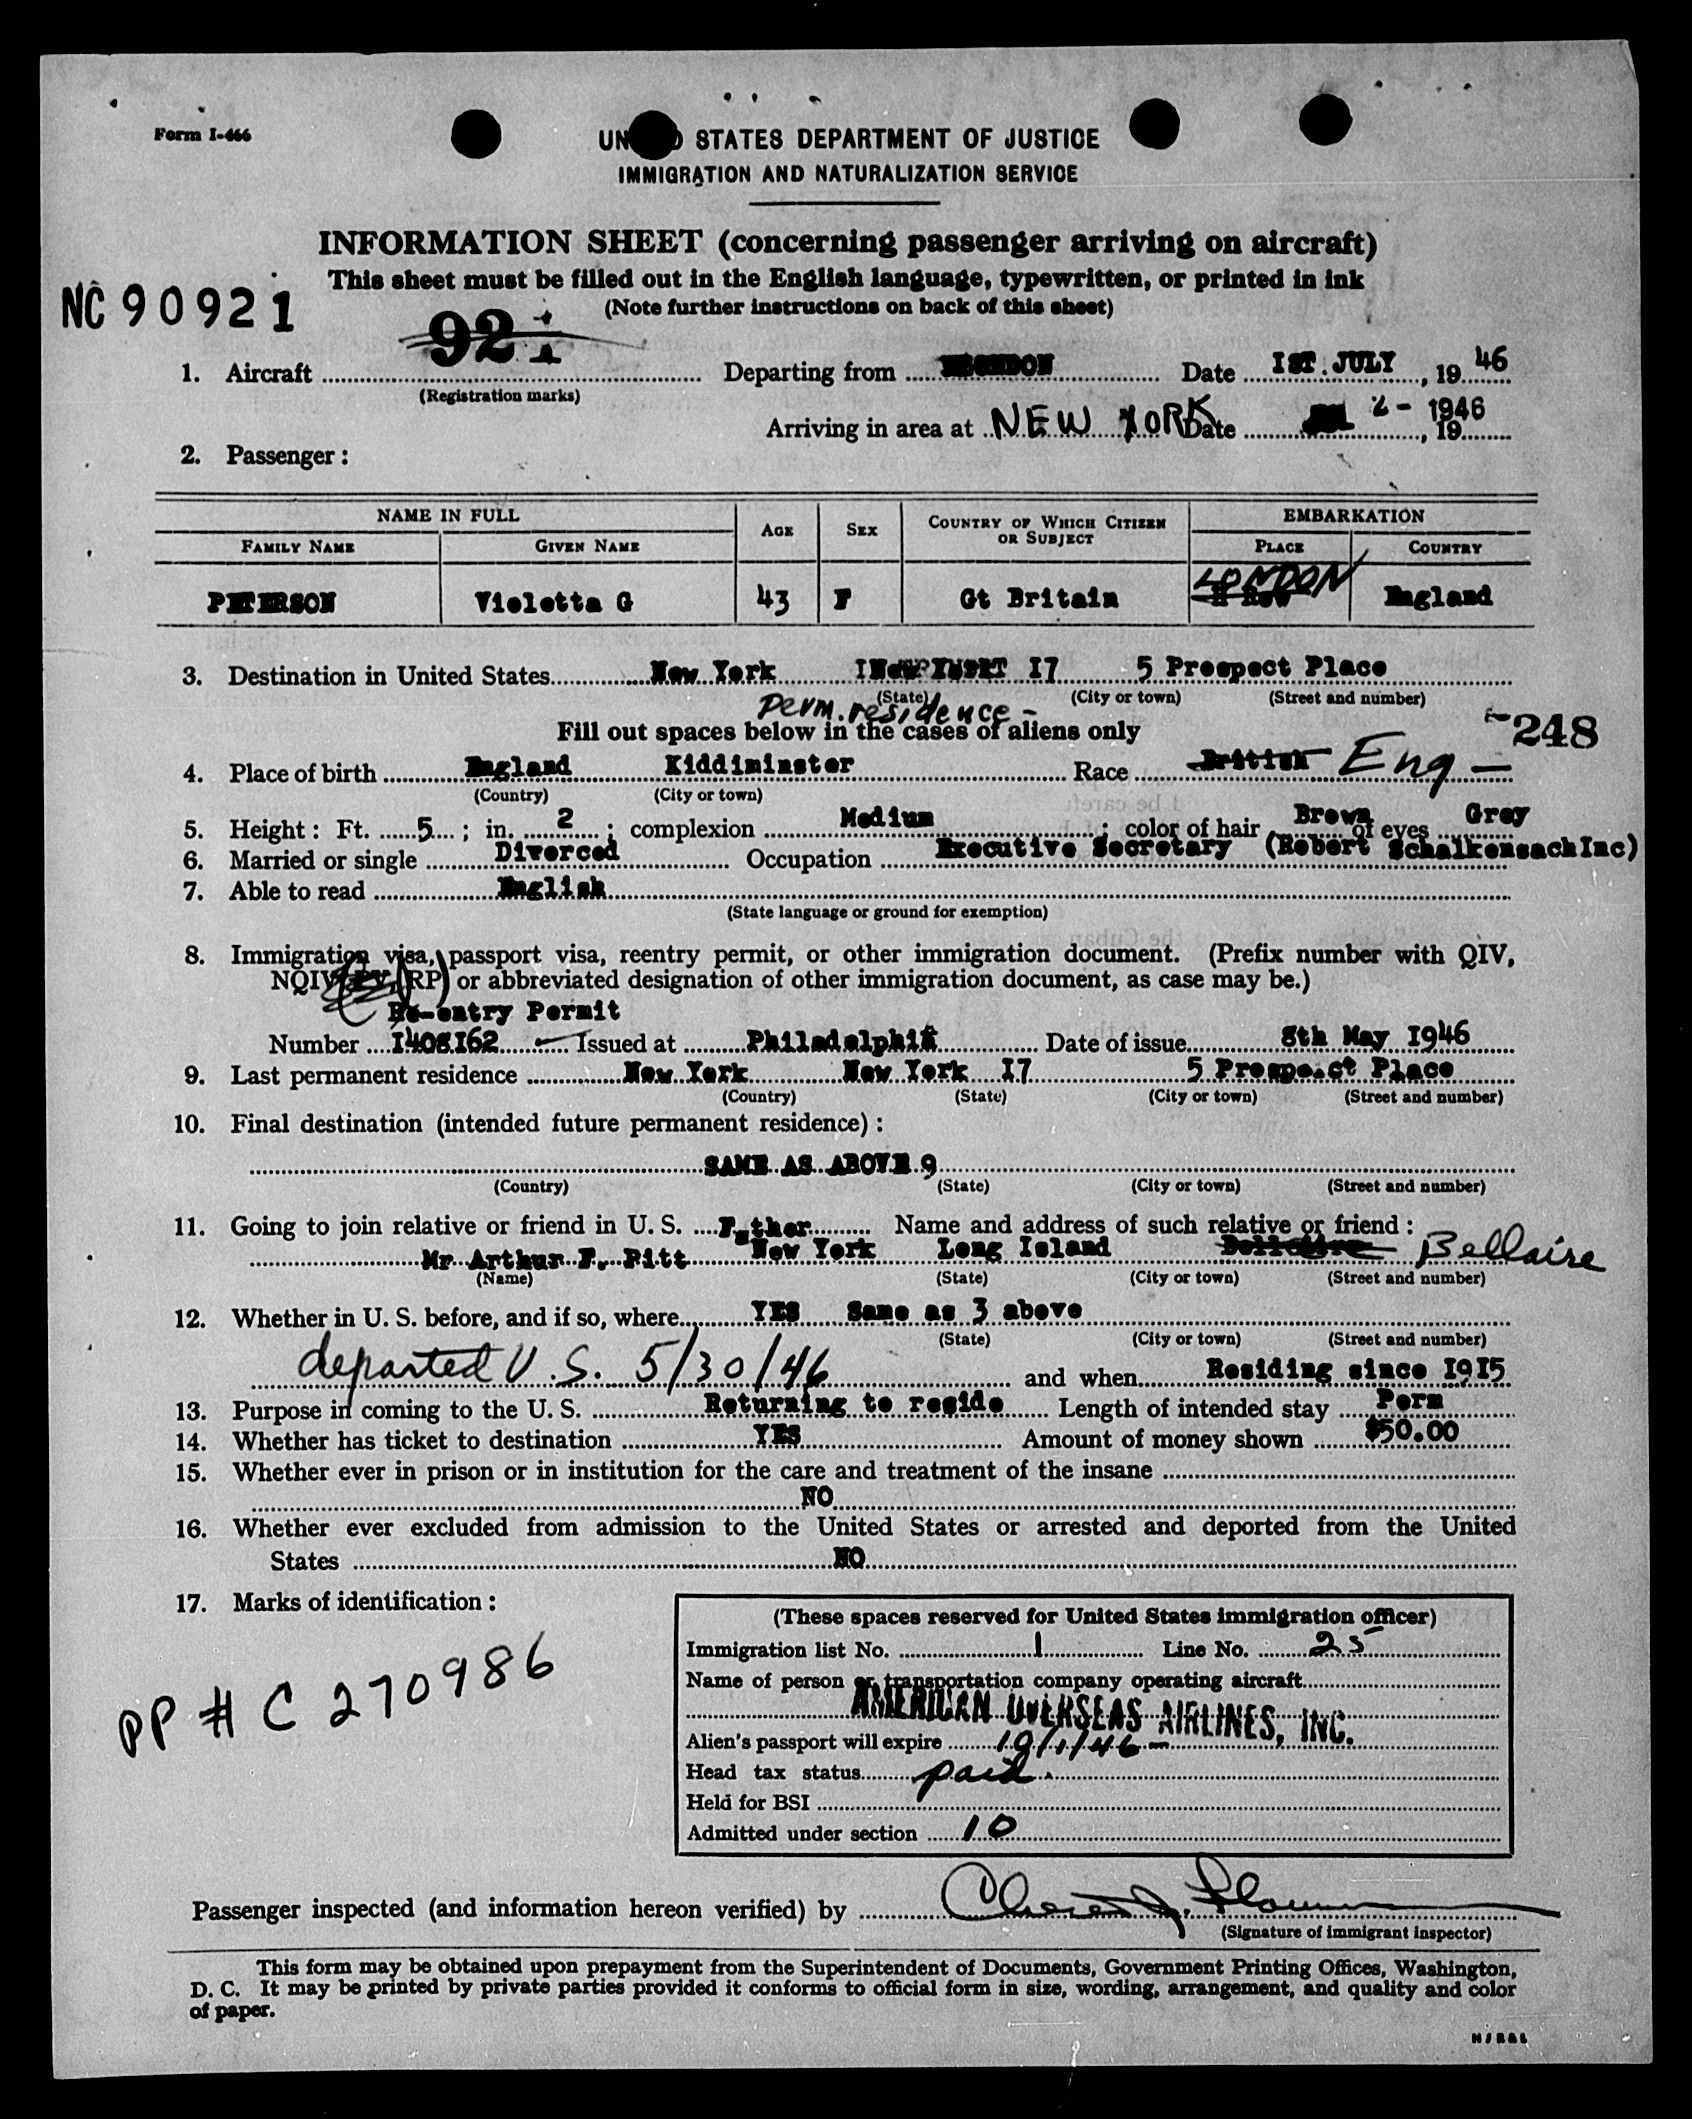 Form I-466
UNITED STATES DEPARTMENT OF JUSTICE
IMMIGRATION AND NATURALIZATION SERVICE
INFORMATION SHEET (concerning passenger arriving on aircraft)
This sheet must be filled out in the English language, typewritten, or printed in ink
(Note further instructions on back of this sheet)
NC 90921
92
1. Aircraft Departing from LONDON Date IST. JULY, 19 46
(Registration marks)
Arriving in area at NEW YORK Date JUL 2 - 1946, 19
2. Passenger:
NAME IN FULL AGE SEX COUNTRY OF WHICH CITIZEN OR SUBJECT EMBARKATION
FAMILY NAME GIVEN NAME PLACE COUNTRY
LONDON
PETERSON Violetta G 43 F Gt Britain H Row England
3. Destination in United States New York I7 5 Prospect Place
(State) (City or town) (Street and number)
Perm. residence -
Fill out spaces below in the cases of aliens only
248
4. Place of birth England Kiddiminster Race British Eng —
(Country) (City or town)
5. Height: Ft. 5; in. 2; complexion Medium; color of hair Brown of eyes Grey
6. Married or single Divorced Occupation Executive Secretary (Robert SchalkensachInc)
7. Able to read English
(State language or ground for exemption)
8. Immigration visa, passport visa, reentry permit, or other immigration document. (Prefix number with QIV,
NQIV, PV, RP) or abbreviated designation of other immigration document, as case may be.)
Re-entry Permit
Number I408I62 Issued at Philadelphia Date of issue 8th May I946
9. Last permanent residence New York New York I7 5 Prospect Place
(Country) (State) (City or town) (Street and number)
10. Final destination (intended future permanent residence):
SAME AS ABOVE 9
(Country) (State) (City or town) (Street and number)
11. Going to join relative or friend in U. S. Father Name and address of such relative or friend:
Mr Arthur F. Pitt New York Long Island Bellaire
(Name) (State) (City or town) (Street and number)
12. Whether in U. S. before, and if so, where YES Same as 3 above
(State) (City or town) (Street and number)
departed U.S. 5/30/46 and when Residing since I9I5
13. Purpose in coming to the U. S. Returning to reside Length of intended stay Perm
14. Whether has ticket to destination YES Amount of money shown $50.00
15. Whether ever in prison or in institution for the care and treatment of the insane
NO
16. Whether ever excluded from admission to the United States or arrested and deported from the United
States NO
17. Marks of identification:
PP # C 270986
(These spaces reserved for United States immigration officer)
Immigration list No. 1 Line No. 25
Name of person or transportation company operating aircraft
AMERICAN OVERSEAS AIRLINES, INC.
Alien's passport will expire 10/1/46 -
Head tax status paid.
Held for BSI
Admitted under section 10
Passenger inspected (and information hereon verified) by
(Signature of immigrant inspector)
This form may be obtained upon prepayment from the Superintendent of Documents, Government Printing Offices, Washington,
D. C. It may be printed by private parties provided it conforms to official form in size, wording, arrangement, and quality and color
of paper.